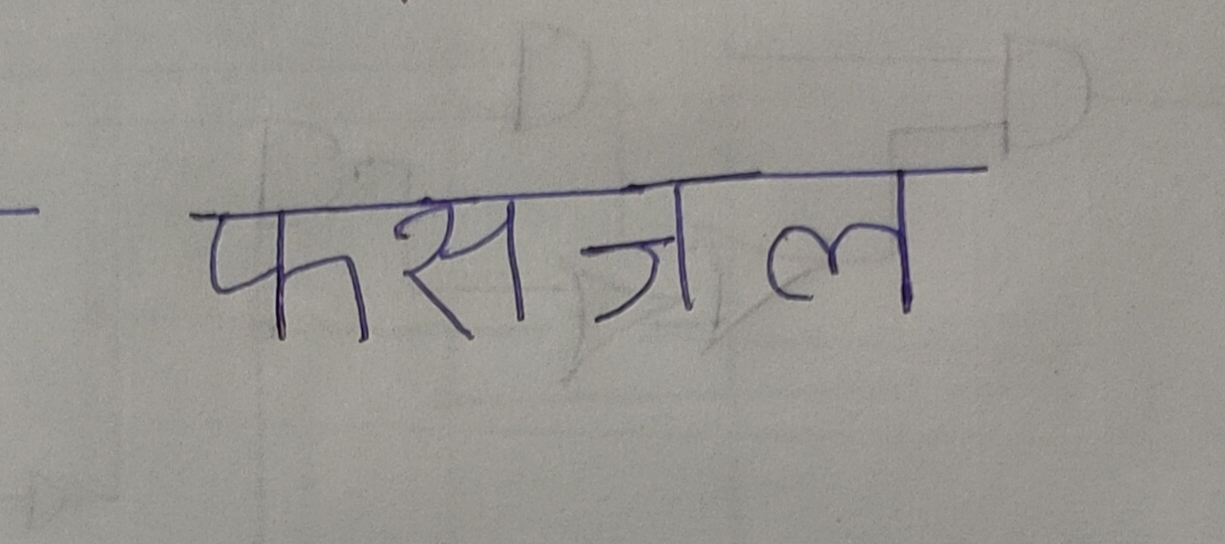 फसजल